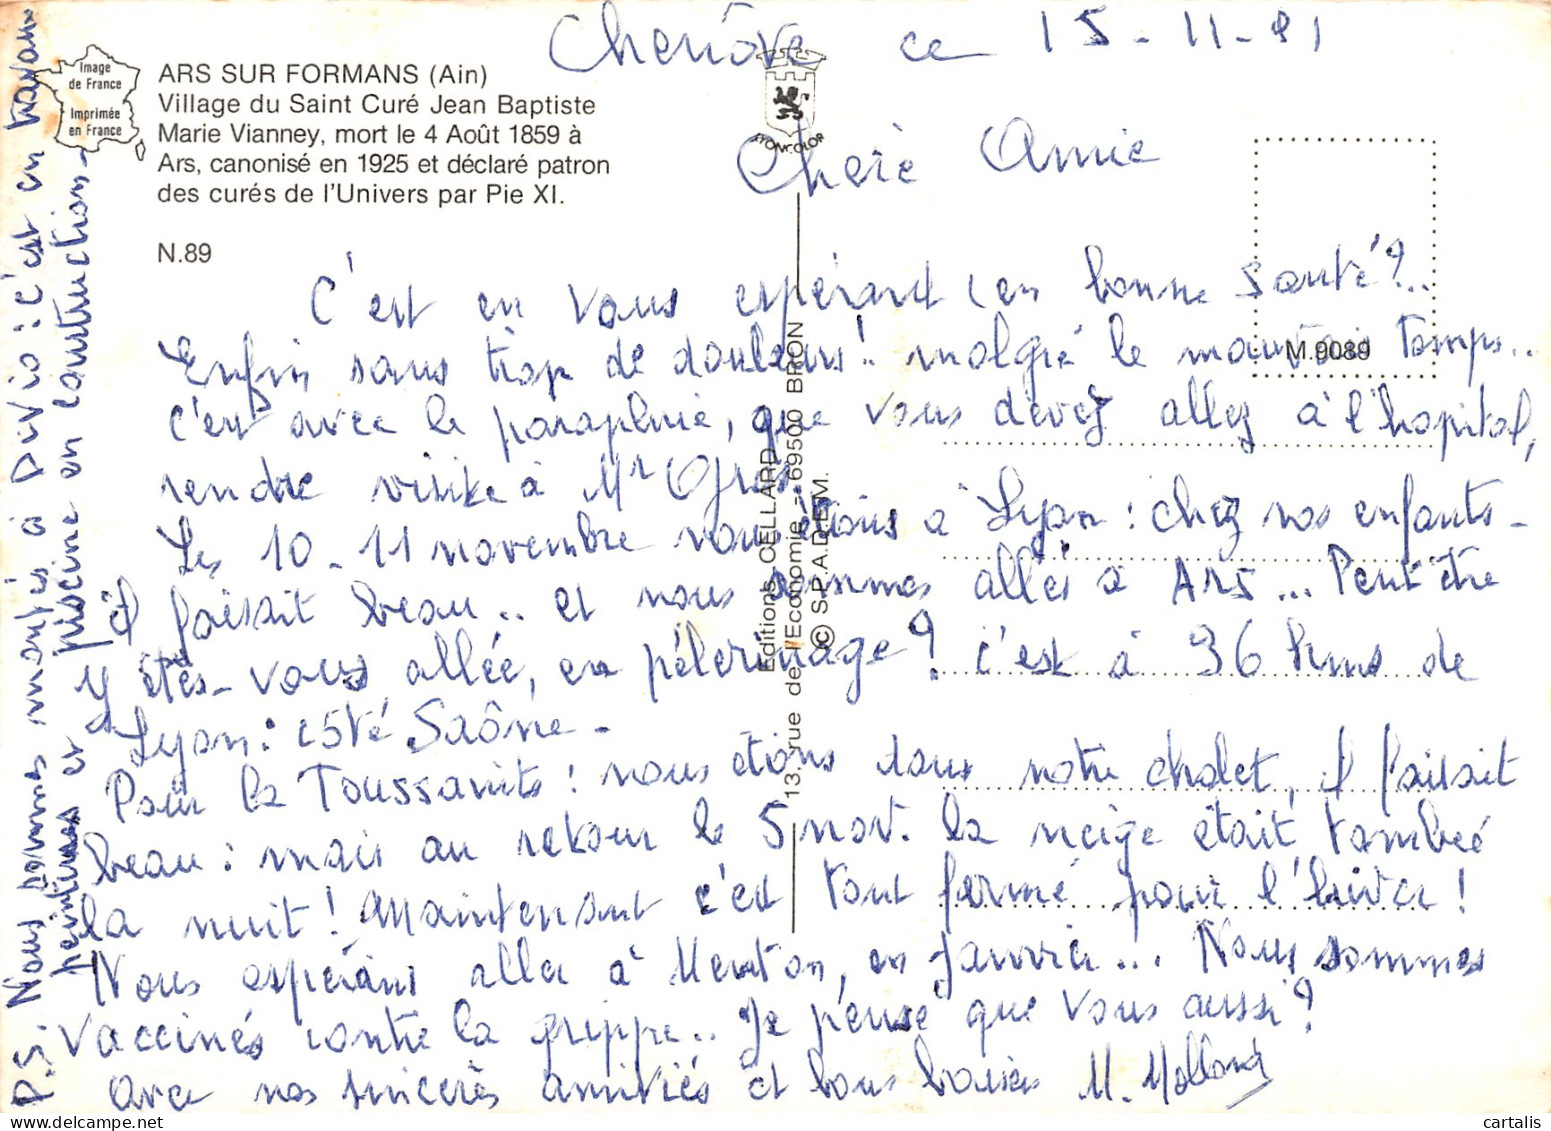 Chenôve ce 15-11-81
Image
de France
Imprimée
en France
ARS SUR FORMANS (Ain)
Village du Saint Curé Jean Baptiste
Marie Vianney, mort le 4 Août 1859 à
Ars, canonisé en 1925 et déclaré patron
des curés de l'Univers par Pie XI.
N.89
LYONCOLOR
Chère Amie
M.9089
Editions CELLARD
13, rue de l'Economie - 69500 BRON
© S.P.A.D.E.M.
C'est en vous espérant (en bonne santé?..
Enfin sans trop de douleurs! malgré le mauvais temps..
c'est avec le parapluie, que vous devez allez à l'hopital,
rendre visite à Mr Gros.
Les 10-11 novembre nous étions à Lyon: chez nos enfants-
il faisait beau.. et nous sommes allés à Ars... Peut être
y êtes-vous allée, en pélerinage? c'est à 36 kms de
Lyon: côté Saône-
Pour la Toussaints: nous étions dans notre chalet, il faisait
beau: mais au retour le 5 nov. la neige était tombée
la nuit! Maintenant c'est tout fermé pour l'hiver!
Nous espérons aller à Menton, en Janvier... Nous sommes
vaccinés contre la grippe.. Je pense que vous aussi?
Avec nos sincères amitiés et bons baisers M. Molland
P.S. Nous sommes montés à : c'est en travaux
peintures et piscine en construction-
cartalis